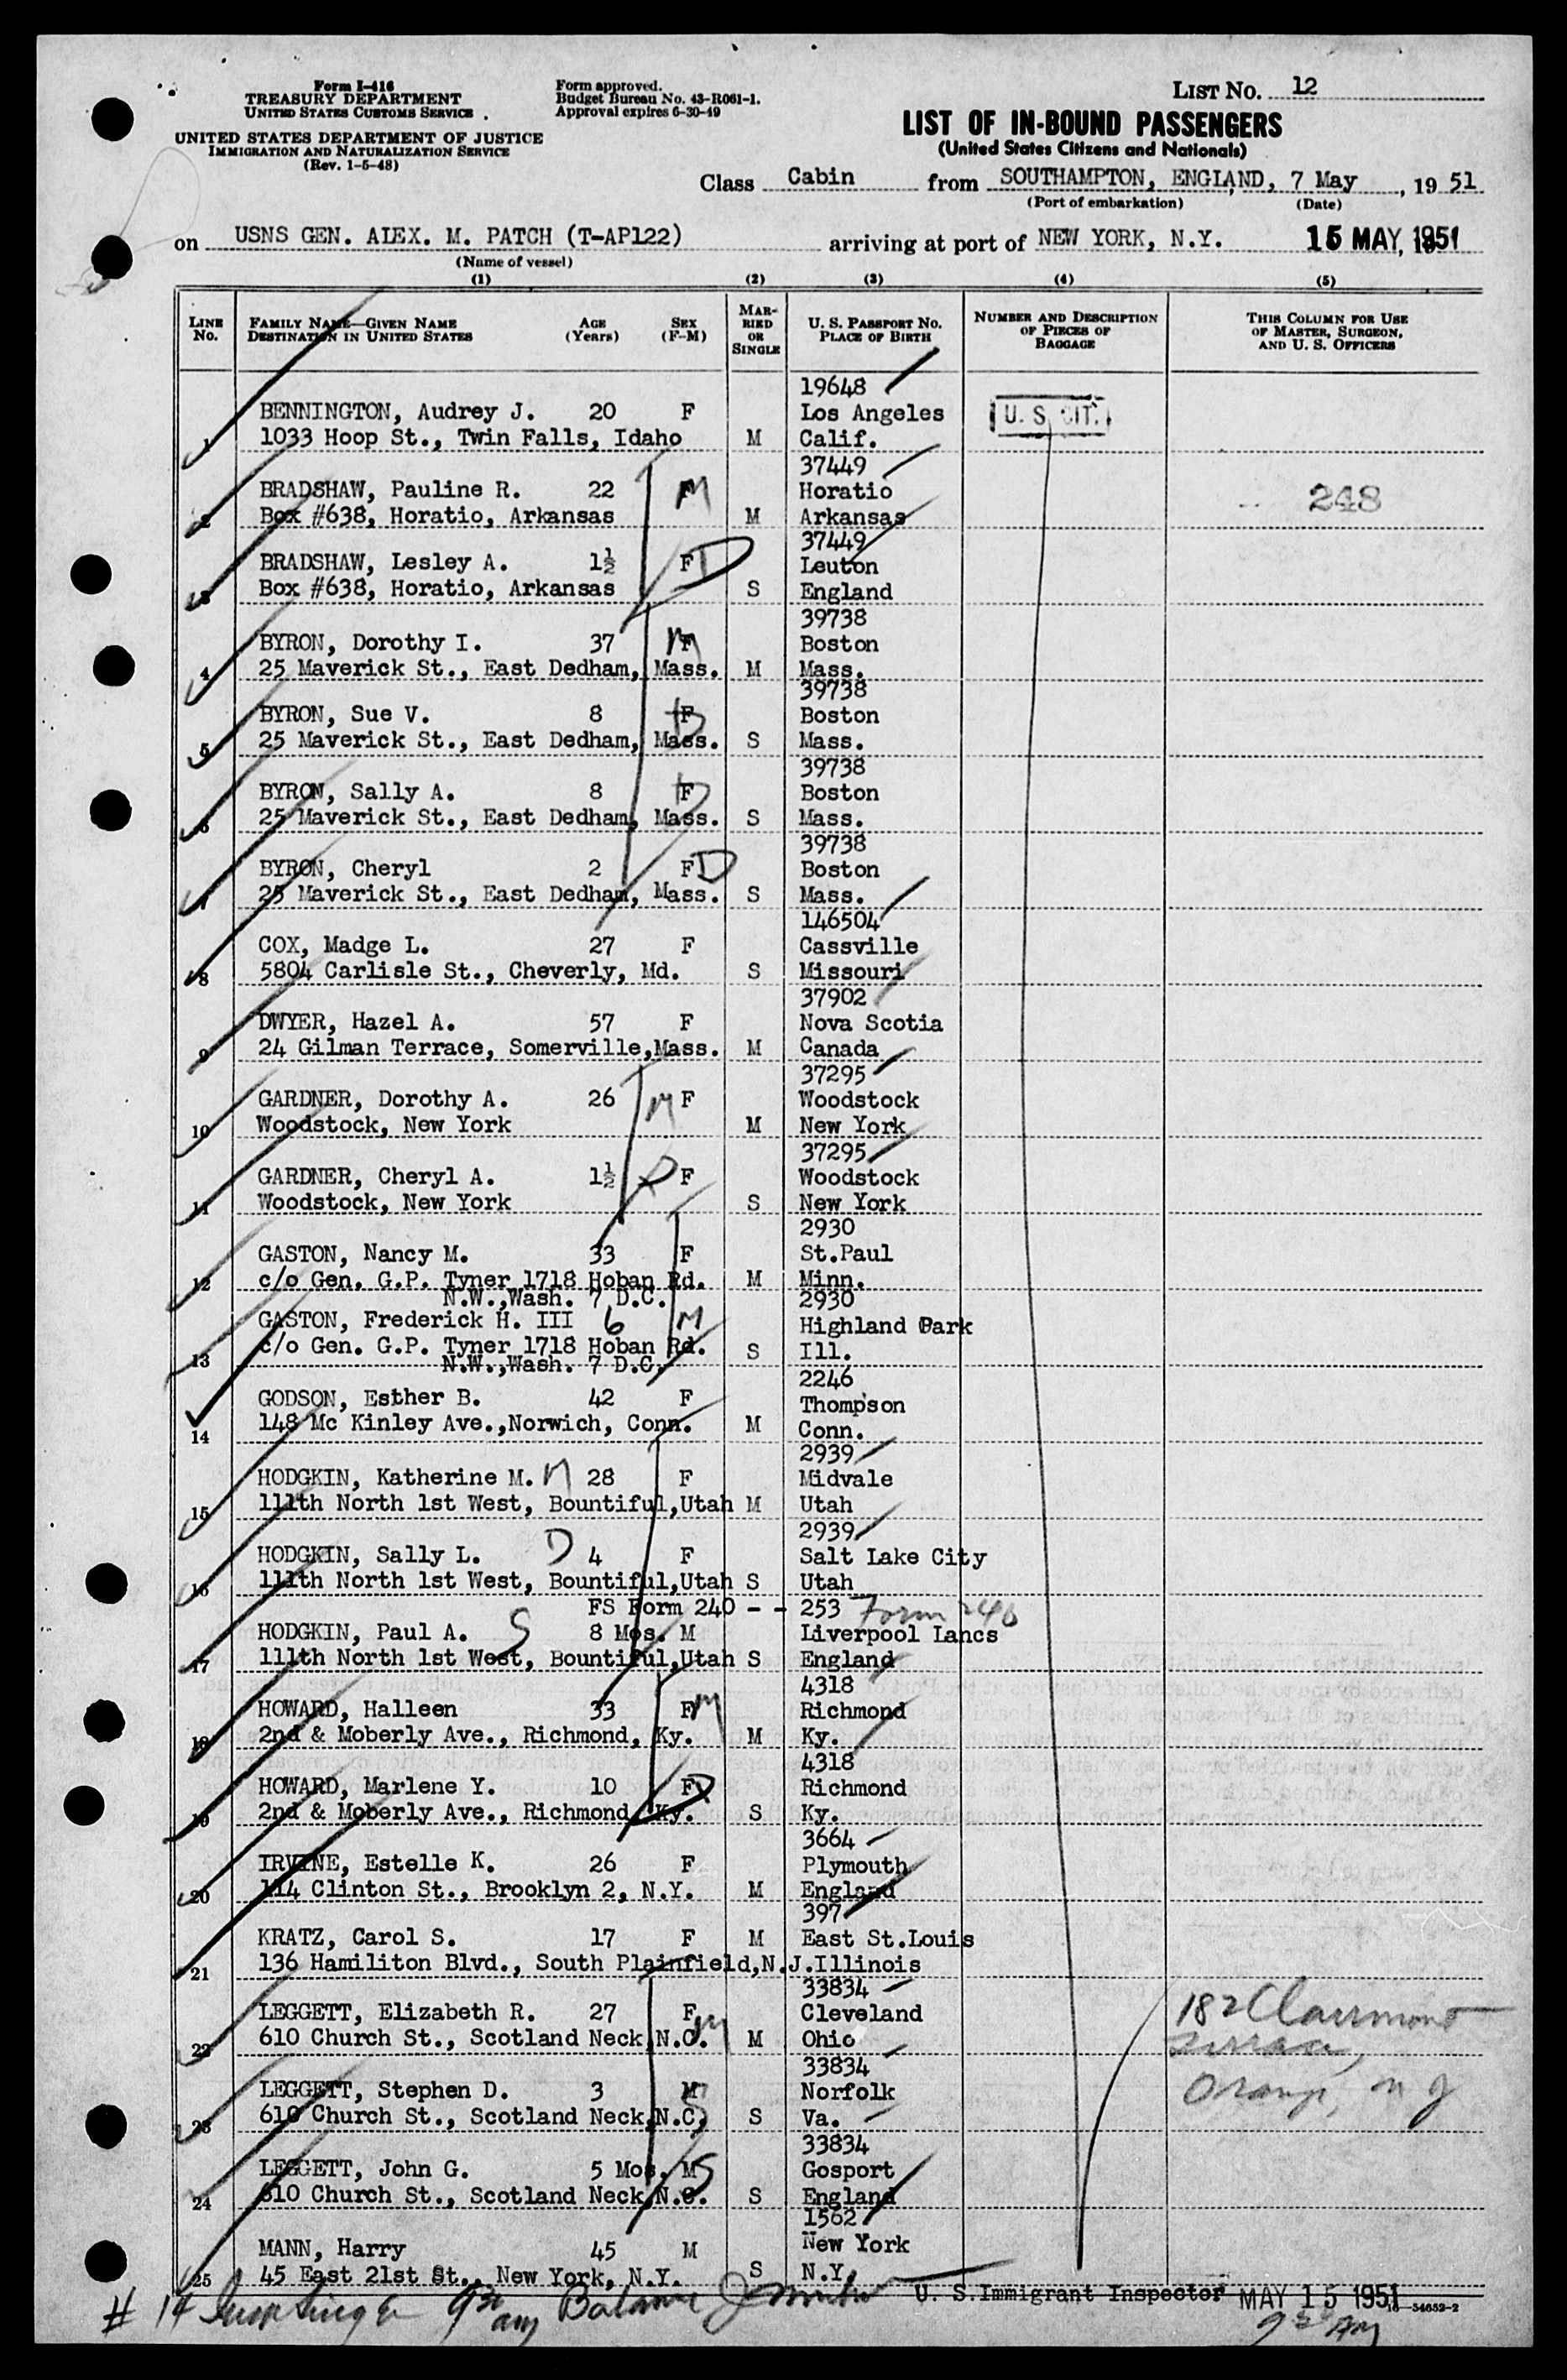 Form I-416
TREASURY DEPARTMENT
UNITED STATES CUSTOMS SERVICE
UNITED STATES DEPARTMENT OF JUSTICE
IMMIGRATION AND NATURALIZATION SERVICE
(Rev. 1-5-48)
Form approved.
Budget Bureau No. 43-R061-1.
Approval expires 6-30-49
LIST NO. 12
LIST OF IN-BOUND PASSENGERS
(United States Citizens and Nationals)
Class Cabin from SOUTHAMPTON, ENGLAND, 7 May, 19 51
(Port of embarkation) (Date)
on USNS GEN. ALEX. M. PATCH (T-AP122) arriving at port of NEW YORK, N.Y. 15 MAY, 1951
(Name of vessel)
(1) (2) (3) (4) (5)
LINE No.
FAMILY NAME—GIVEN NAME DESTINATION IN UNITED STATES
AGE (Years)
SEX (F-M)
MARRIED OR SINGLE
U. S. PASSPORT NO. PLACE OF BIRTH
NUMBER AND DESCRIPTION OF PIECES OF BAGGAGE
THIS COLUMN FOR USE OF MASTER, SURGEON, AND U. S. OFFICERS
19648
BENNINGTON, Audrey J. 20 F Los Angeles U. S. CIT.
1 1033 Hoop St., Twin Falls, Idaho M Calif.
37449
BRADSHAW, Pauline R. 22 F M Horatio 248
2 Box #638, Horatio, Arkansas M Arkansas
37449
BRADSHAW, Lesley A. 1½ F D Leuton
3 Box #638, Horatio, Arkansas S England
39738
BYRON, Dorothy I. 37 F M Boston
4 25 Maverick St., East Dedham, Mass. M Mass.
39738
BYRON, Sue V. 8 F D Boston
5 25 Maverick St., East Dedham, Mass. S Mass.
39738
BYRON, Sally A. 8 F D Boston
6 25 Maverick St., East Dedham, Mass. S Mass.
39738
BYRON, Cheryl 2 F D Boston
7 25 Maverick St., East Dedham, Mass. S Mass.
146504
COX, Madge L. 27 F Cassville
8 5804 Carlisle St., Cheverly, Md. S Missouri
37902
DWYER, Hazel A. 57 F Nova Scotia
9 24 Gilman Terrace, Somerville,Mass. M Canada
37295
GARDNER, Dorothy A. 26 M F Woodstock
10 Woodstock, New York M New York
37295
GARDNER, Cheryl A. 1½ D F Woodstock
11 Woodstock, New York S New York
2930
GASTON, Nancy M. 33 F St.Paul
12 c/o Gen. G.P. Tyner 1718 Hoban Rd. M Minn.
N.W.,Wash. 7 D.C. 2930
GASTON, Frederick H. III 6 M Highland Park
13 c/o Gen. G.P. Tyner 1718 Hoban Rd. S Ill.
N.W.,Wash. 7 D.C.
2246
GODSON, Esther B. 42 F Thompson
14 148 Mc Kinley Ave.,Norwich, Conn. M Conn.
2939
HODGKIN, Katherine M. M 28 F Midvale
15 111th North 1st West, Bountiful,Utah M Utah
2939
HODGKIN, Sally L. D 4 F Salt Lake City
16 111th North 1st West, Bountiful,Utah S Utah
FS Form 240 - - 253 Form 240
HODGKIN, Paul A. S 8 Mos. M Liverpool Lancs
17 111th North 1st West, Bountiful,Utah S England
4318
HOWARD, Halleen 33 F M Richmond
18 2nd & Moberly Ave., Richmond, Ky. M Ky.
4318
HOWARD, Marlene Y. 10 F D Richmond
19 2nd & Moberly Ave., Richmond, Ky. S Ky.
3664
IRVINE, Estelle K. 26 F Plymouth
20 114 Clinton St., Brooklyn 2, N.Y. M England
397
KRATZ, Carol S. 17 F M East St.Louis
21 136 Hamiliton Blvd., South Plainfield,N.J.Illinois
33834
LEGGETT, Elizabeth R. 27 F M Cleveland 182 Clairmont
22 610 Church St., Scotland Neck,N.C. M Ohio Terrace,
33834
LEGGETT, Stephen D. 3 M S Norfolk Orange, N J
23 610 Church St., Scotland Neck,N.C. S Va.
33834
LEGGETT, John G. 5 Mos. M S Gosport
24 610 Church St., Scotland Neck,N.C. S England
1562
MANN, Harry 45 M New York
25 45 East 21st St., New York, N.Y. S N.Y.
# 14 9 30 am Balance U. S.Immigrant Inspector MAY 15 1951 16—54652-2
AM